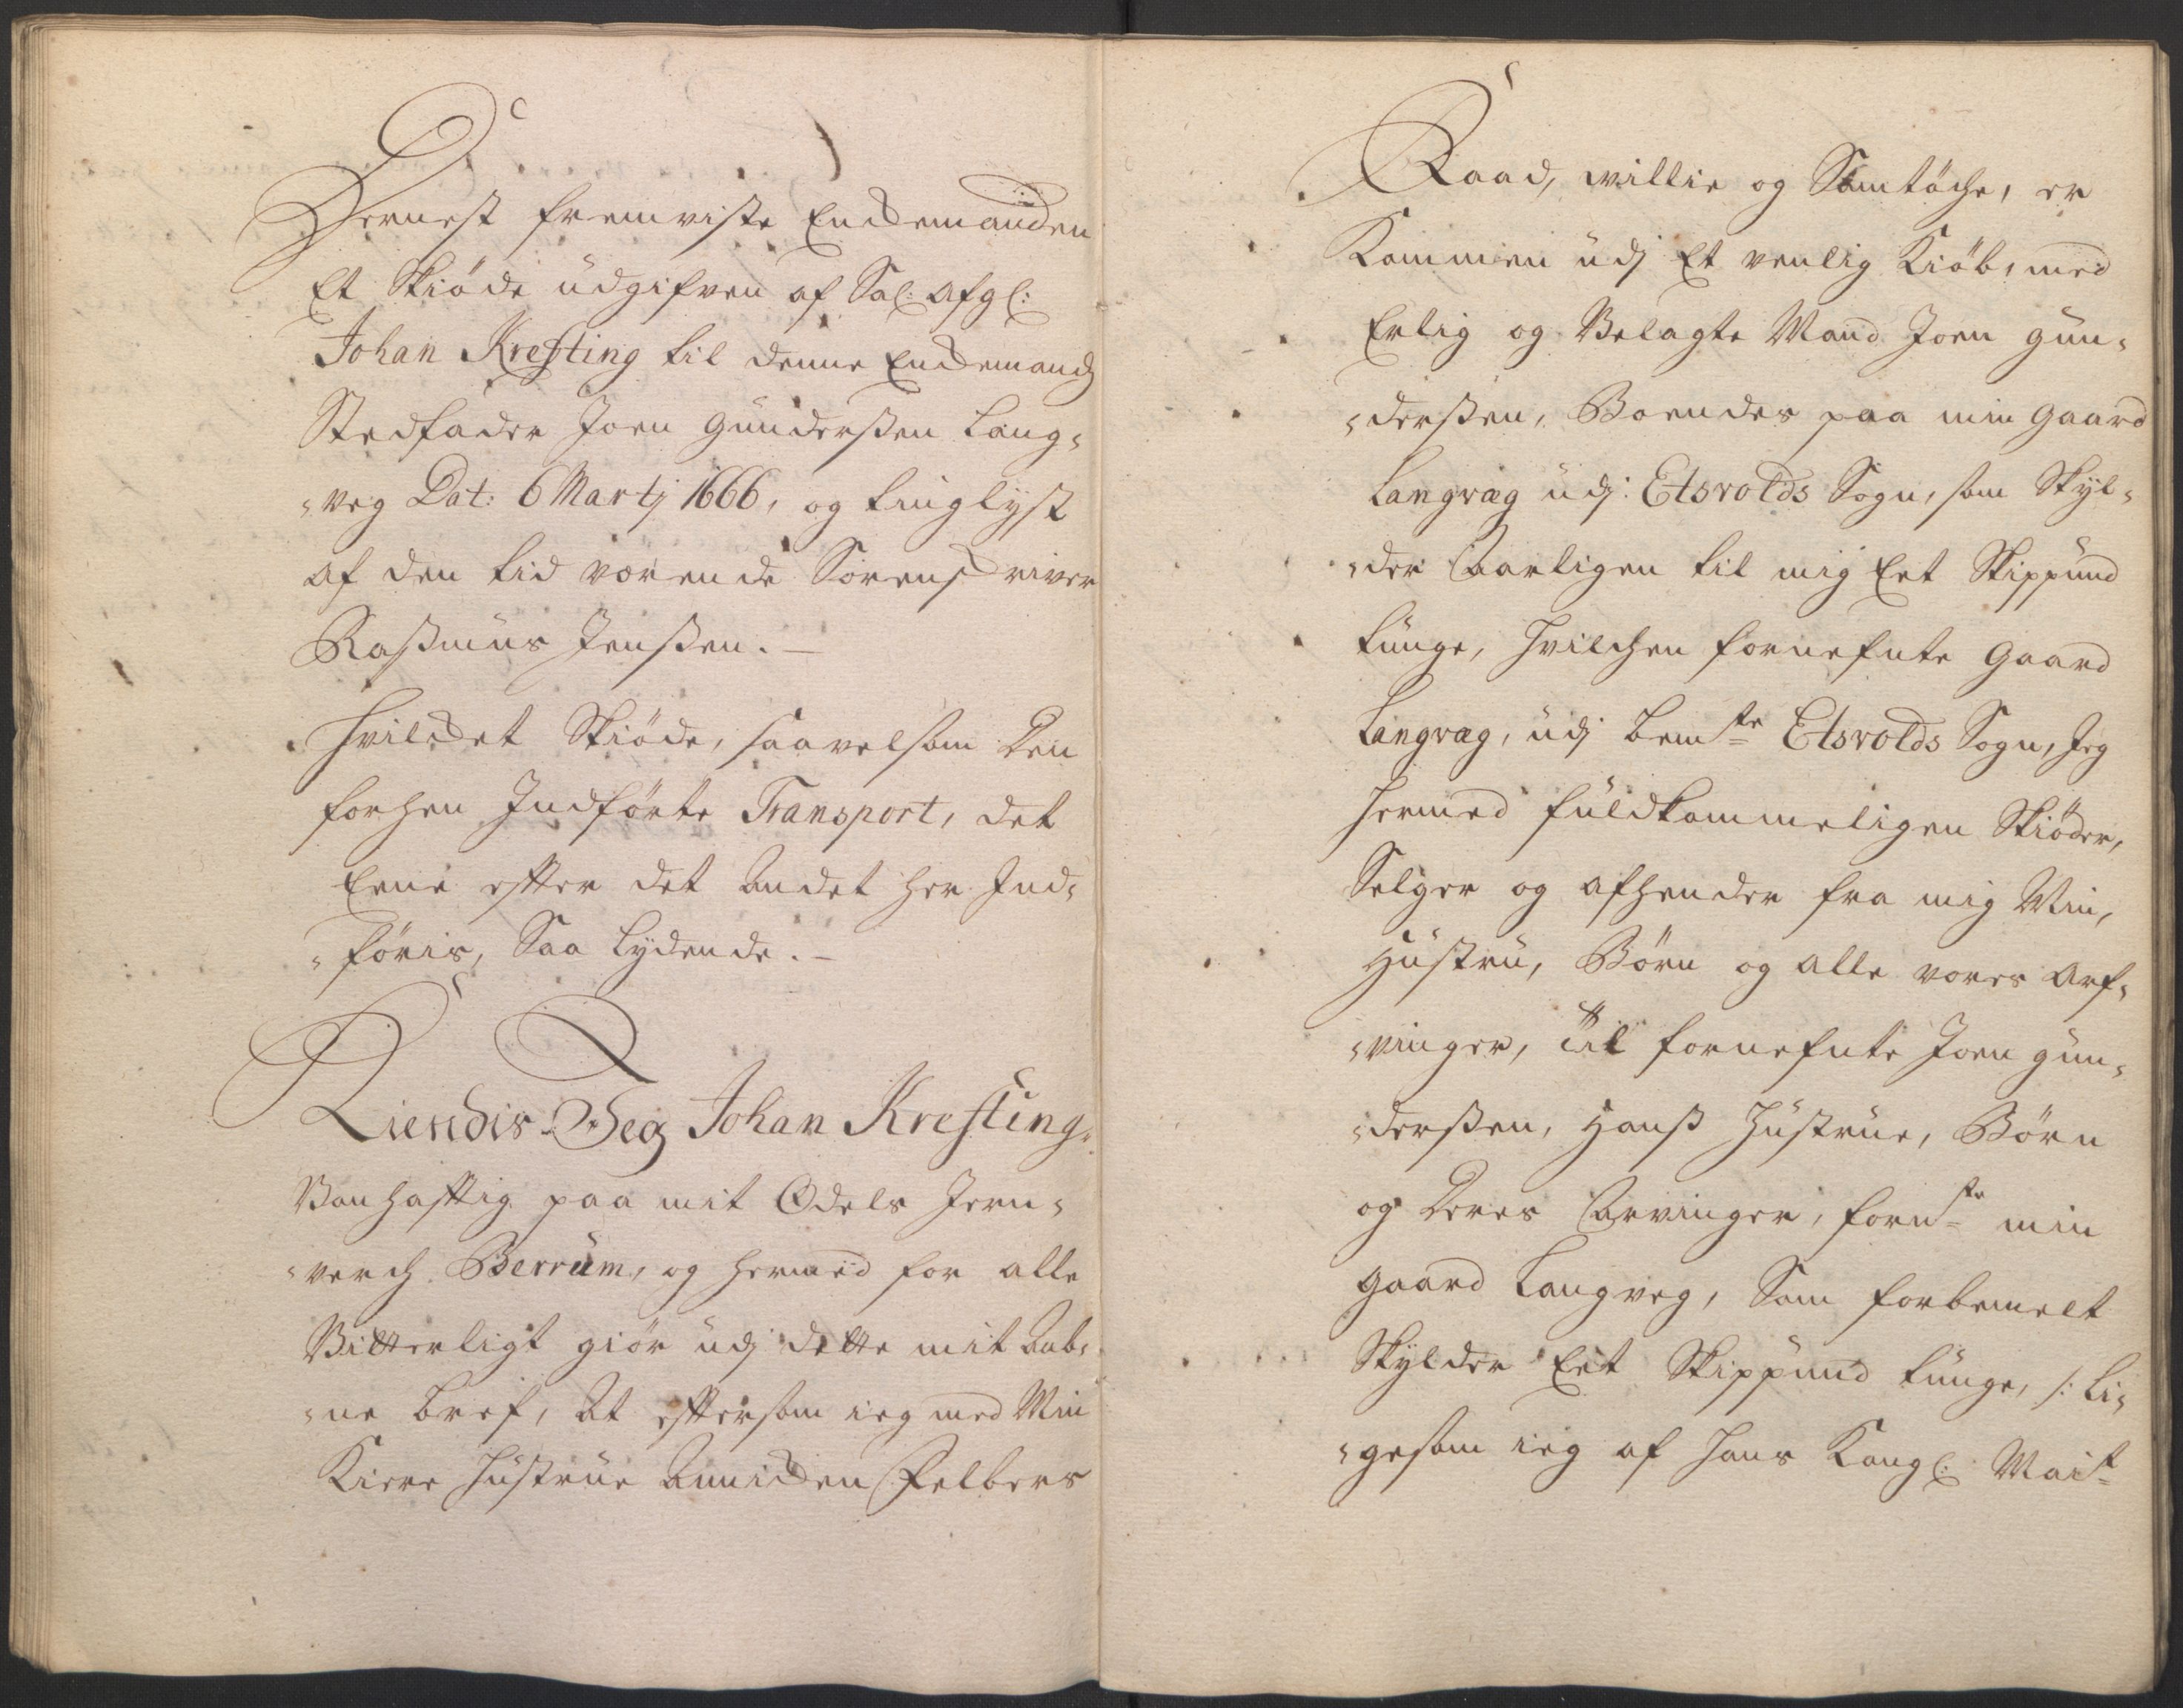 Dernest fremviste Endemanden
Et Skiöde üdgifven af Sal: afgl:
Johan Krefting til denne Endemands
Stedfader Joen Günderßen Lang¬
¬veg Dat: 6 Martj 1666, og tinglyst
af den tid værende Sorenskriver
Raßmüs Jenßen. —
Hvilcket Skiöde, saavelsom den
forhen Indförte Transport, det
Eene efter det Andet her Ind¬
¬föris, Saa Lydende. —
Kiendis Jeg Johan Krefting
Boenhafftig paa mit Odels Jern¬
¬verch Berrüm, og hermed for alle
Vitterligt giör üdj dette mit Aab¬
¬ne bref, At efftersom ieg med Min
Kiere Hüstrüe Annicken Felbers
Raad, willie og Samtöche, er
Kommen üdj Et venlig Kiöb, med
Erlig og Velagte Mand Joen Gün¬
¬derßen, Boendes paa min Gaard
Langvæg üdj: Edsvolds Sogn, som Skyl¬
¬der Aarligen til mig Eet Skippünd
tünge, Hvilchen fornefnte Gaard
Langvæg, üdj bemte Edsvolds Sogn, Jeg
hermed füldkommeligen Skiöder,
Selger og afhender fra mig Min,
Hüstrü, Börn og alle vores Arf¬
¬vinger, til fornefnte Joen Gün¬
¬derßen, Hanß Hüstrüe, Börn
og Deres Arvinger, fornte min
Gaard Langveg, Som forbemelt
Skylder Eet Skippünd tünge, /: Li¬
¬gesom ieg af Hans Kongl: Mait